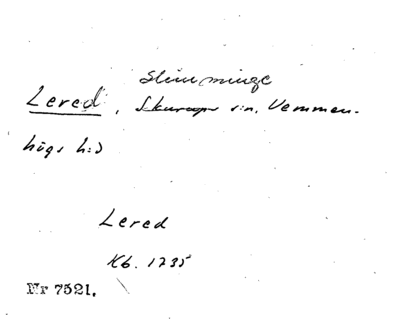 Sleimminge
Lered, Skurups s:n, Vemmen-
högs h:d
Lered
Kb. 1735
Nr 7521.